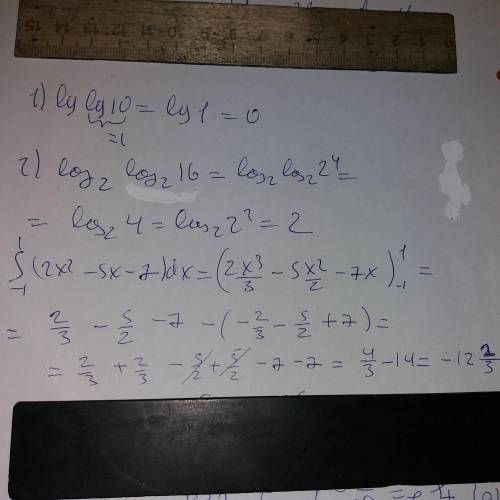 1) lg lg10 = lg1 = 0
=1
2) log₂ log₂ 16 = log₂ log₂ 2⁴ =
= log₂ 4 = log₂ 2² = 2
∫₋₁¹ (2x² - 5x - 7)dx = (2x³/3 - 5x²/2 - 7x)₋₁¹ =
= 2/3 - 5/2 - 7 - (-2/3 - 5/2 + 7) =
= 2/3 + 2/3 - 5/2 + 5/2 - 7 - 7 = 4/3 - 14 = -12 2/3